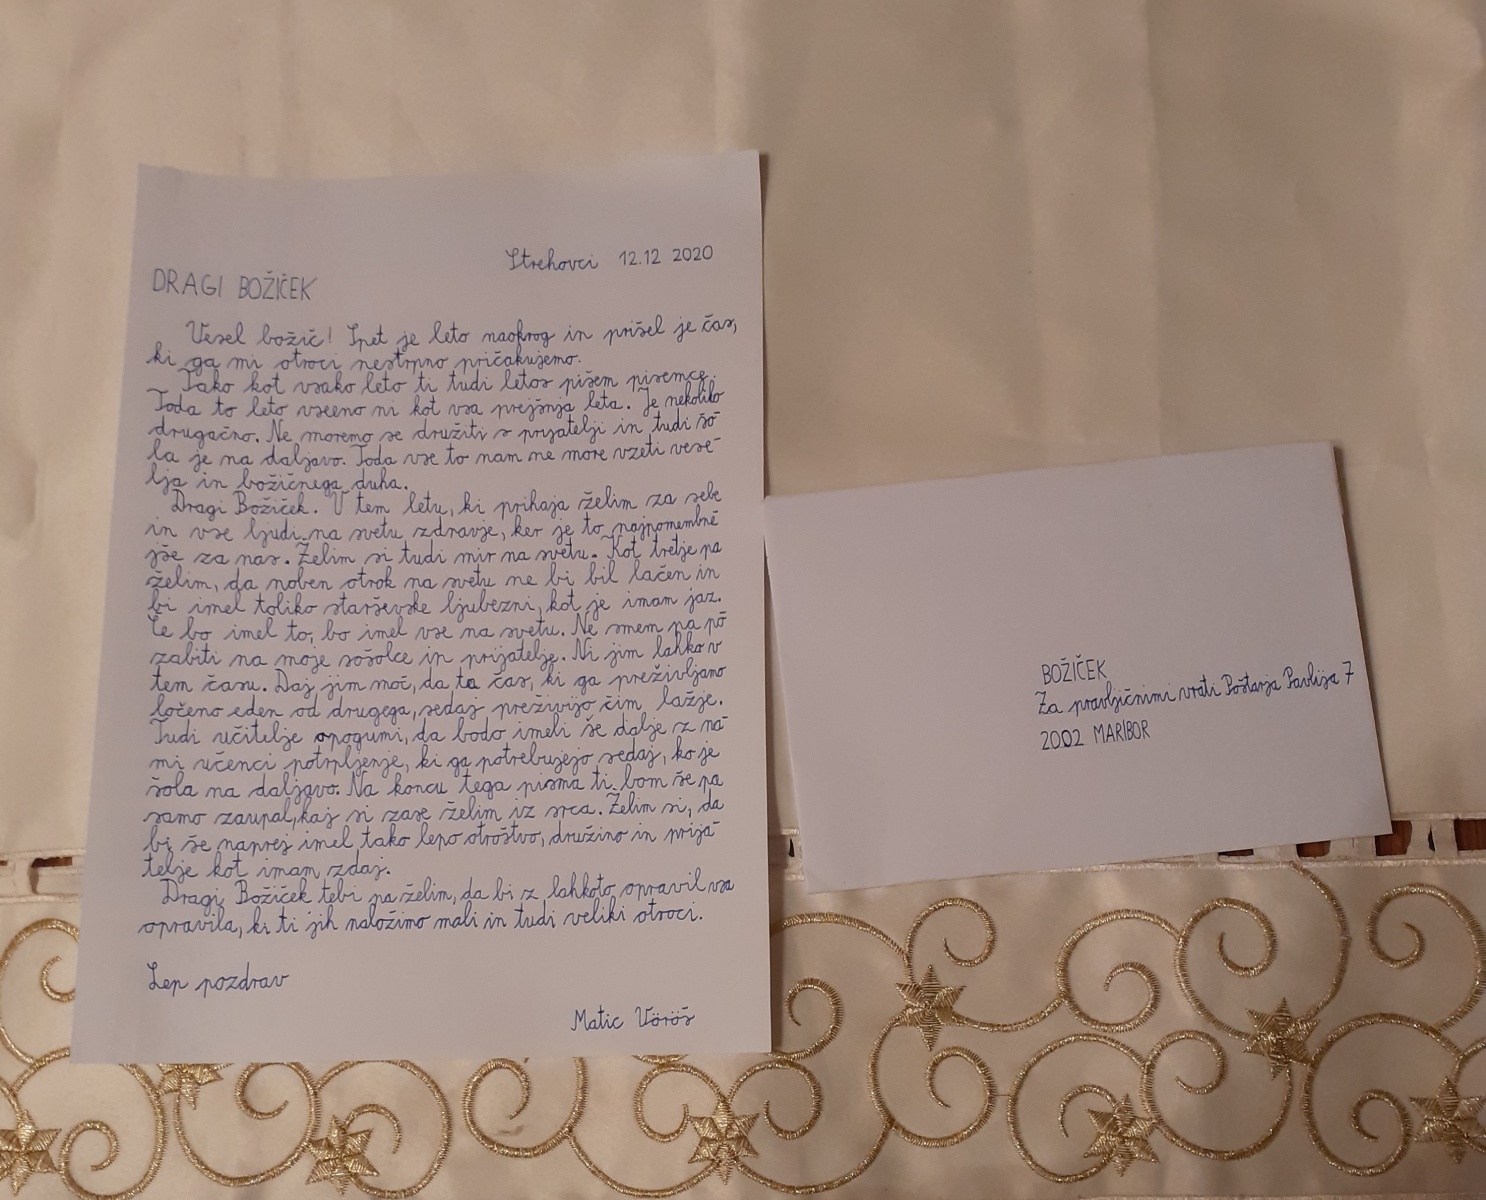 Strehovci 12.12 2020
DRAGI BOŽIČEK
Vesel božič! Spet je leto naokrog in prišel je čas,
ki ga mi otroci nestrpno pričakujemo.
Tako kot vsako leto ti tudi letos pišem pisemce.
Toda to leto vseeno ni kot vsa prejšnja leta. Je nekoliko
drugačno. Ne moremo se družiti s prijatelji in tudi šo-
la je na daljavo. Toda vse to nam ne more vzeti vese-
lja in božičnega duha.
Dragi Božiček. V tem letu, ki prihaja želim za sebe
in vse ljudi na svetu zdravje, ker je to najpomembne-
jše za nas. Želim si tudi mir na svetu. Kot tretje pa
želim, da noben otrok na svetu ne bi bil lačen in
bi imel toliko starševske ljubezni, kot je imam jaz.
Če bo imel to, bo imel vse na svetu. Ne smem pa po-
zabiti na moje sošolce in prijatelje. Ni jim lahko v
tem času. Daj jim moč, da ta čas, ki ga preživljamo
ločeno eden od drugega, sedaj preživijo čim lažje.
Tudi učitelje opogumi, da bodo imeli še dalje z na-
mi učenci potrpljenje, ki ga potrebujejo sedaj, ko je
šola na daljavo. Na koncu tega pisma ti bom še pa
samo zaupal, kaj si zase želim iz srca. Želim si, da
bi še naprej imel tako lepo otroštvo, družino in prija-
telje kot imam zdaj.
Dragi Božiček tebi pa želim, da bi z lahkoto opravil vsa
opravila, ki ti jih naložimo mali in tudi veliki otroci.
Lep pozdrav
Matic Vörös
BOŽIČEK
Za pravljičnimi vrati Poštarja Pavlija 7
2002 MARIBOR